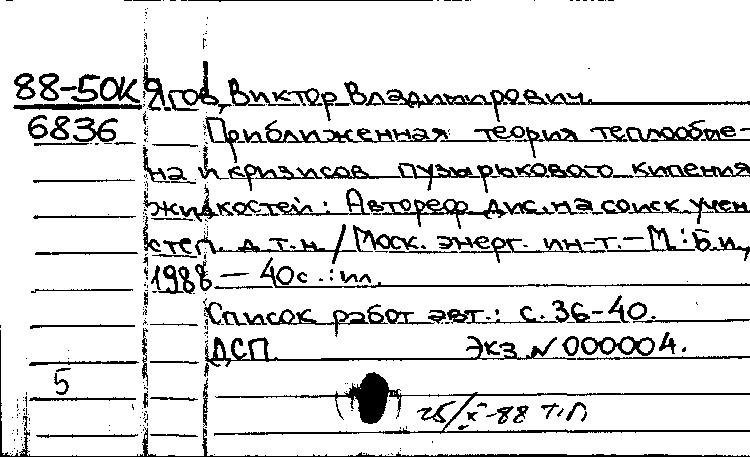 88-50К Ягов, Виктор Владимирович.
6836 Приближенная теория теплообме-
на и кризисов пузырькового кипения
жидкостей: Автореф. дис. на соиск. учен.
степ. д.т.н. / Моск. энерг. ин-т. - М.: Б.и.,
1988 - 40с.: ил.
Список работ авт.: с. 36-40.
ДСП Экз. N 000004.
5
25/X-88 Т.П